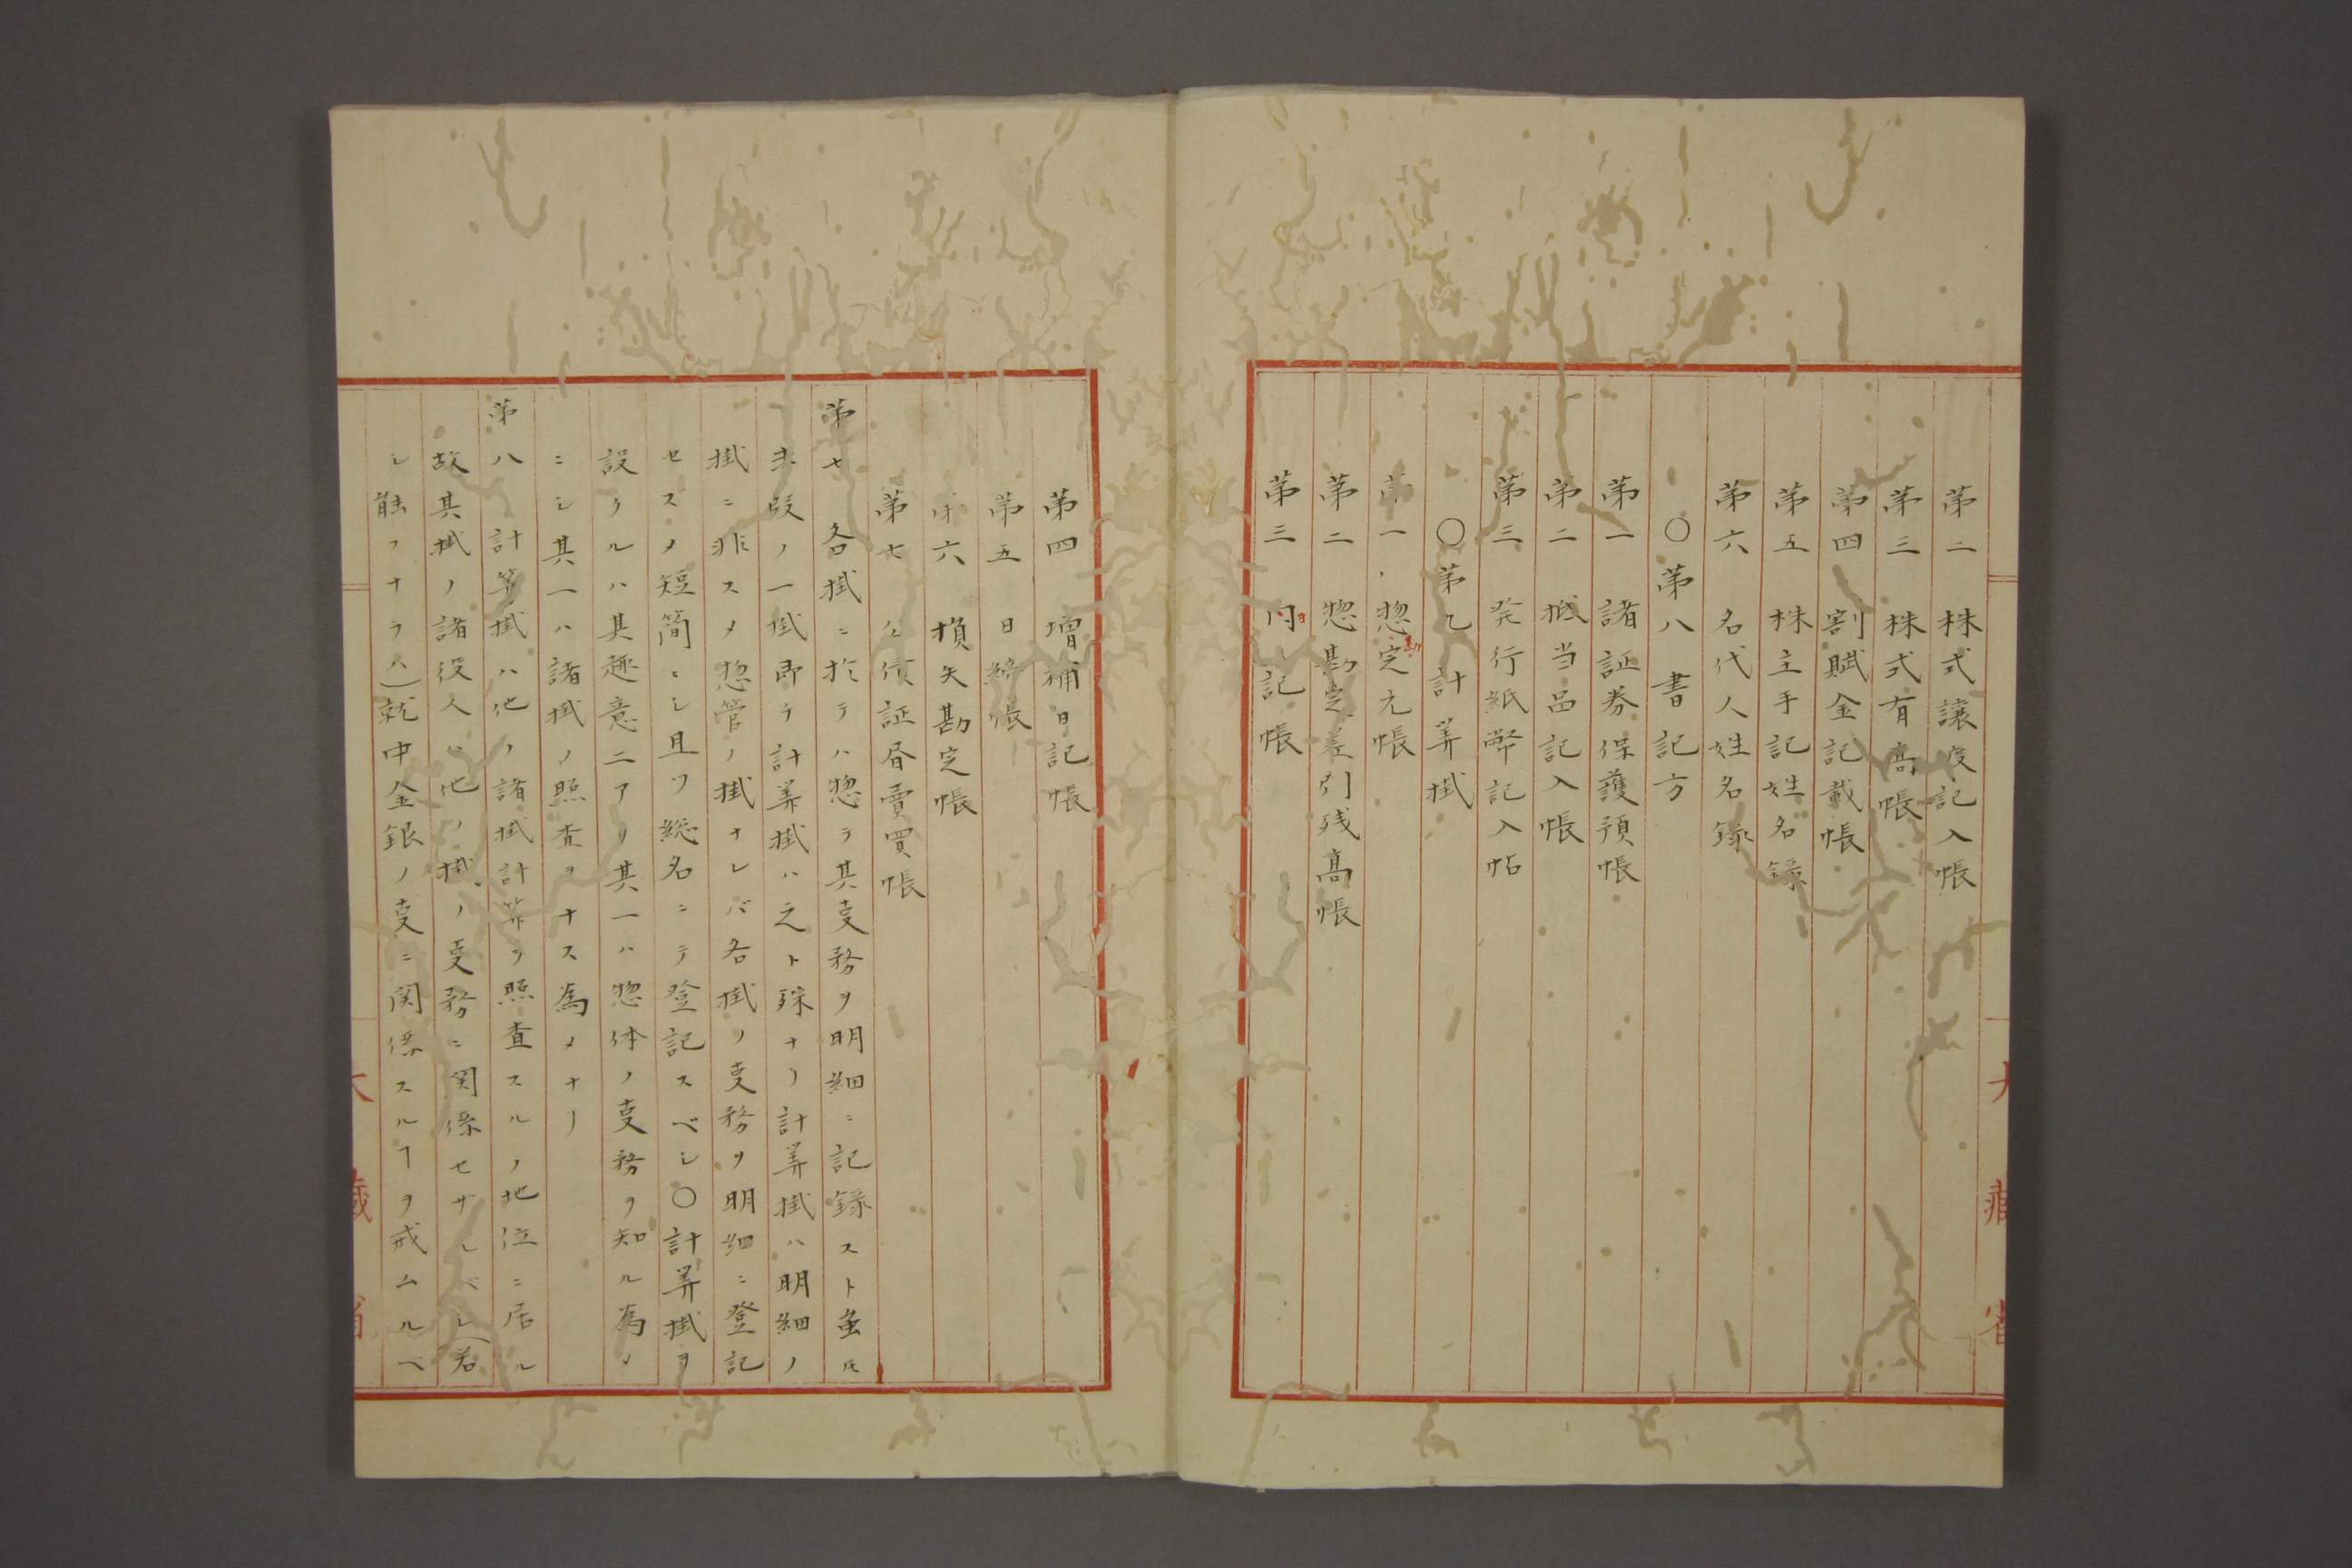 第二 株式讓渡記入帳
第三 株式有高帳
第四 割賦金記載帳
第五 株主手記姓名録
第六 名代人姓名録
〇第八 書記方
第一 諸証券保護預帳
第二 抵当品記入帳
第三 発行紙幣記入帖
〇第九 計算掛
第一 惣勘定元帳
第二 惣勘定差引残高帳
第三 日記帳
大藏省
第四 増補日記帳
第五 日締帳
第六 損失勘定帳
第七 公債証書賣買帳
第七 各掛ニ於テハ惣テ其事務ヲ明細ニ記録スト雖𪜈
本段ノ一掛即チ計算掛ハ之ト殊ナリ計算掛ハ明細ノ
掛ニ非スメ惣管ノ掛ナレバ各掛ノ事務ヲ明細ニ登記
セスメ短簡ニシ且ツ総名ニテ登記スベシ〇計算掛ヲ
設クルハ其趣意二アリ其一ハ惣体ノ事務ヲ知ル為メ
ニシ其一ハ諸掛ノ照査ヲナス為メナリ
第八 計算掛ハ他ノ諸掛計算ヲ照査スルノ地位ニ居ル
故其掛ノ諸役人ハ他ノ掛ノ事務ニ関係セザルベシ(若
シ能フナラハ)就中金銀ノ事ニ関係スルヿヲ戒ムルベ
大藏省